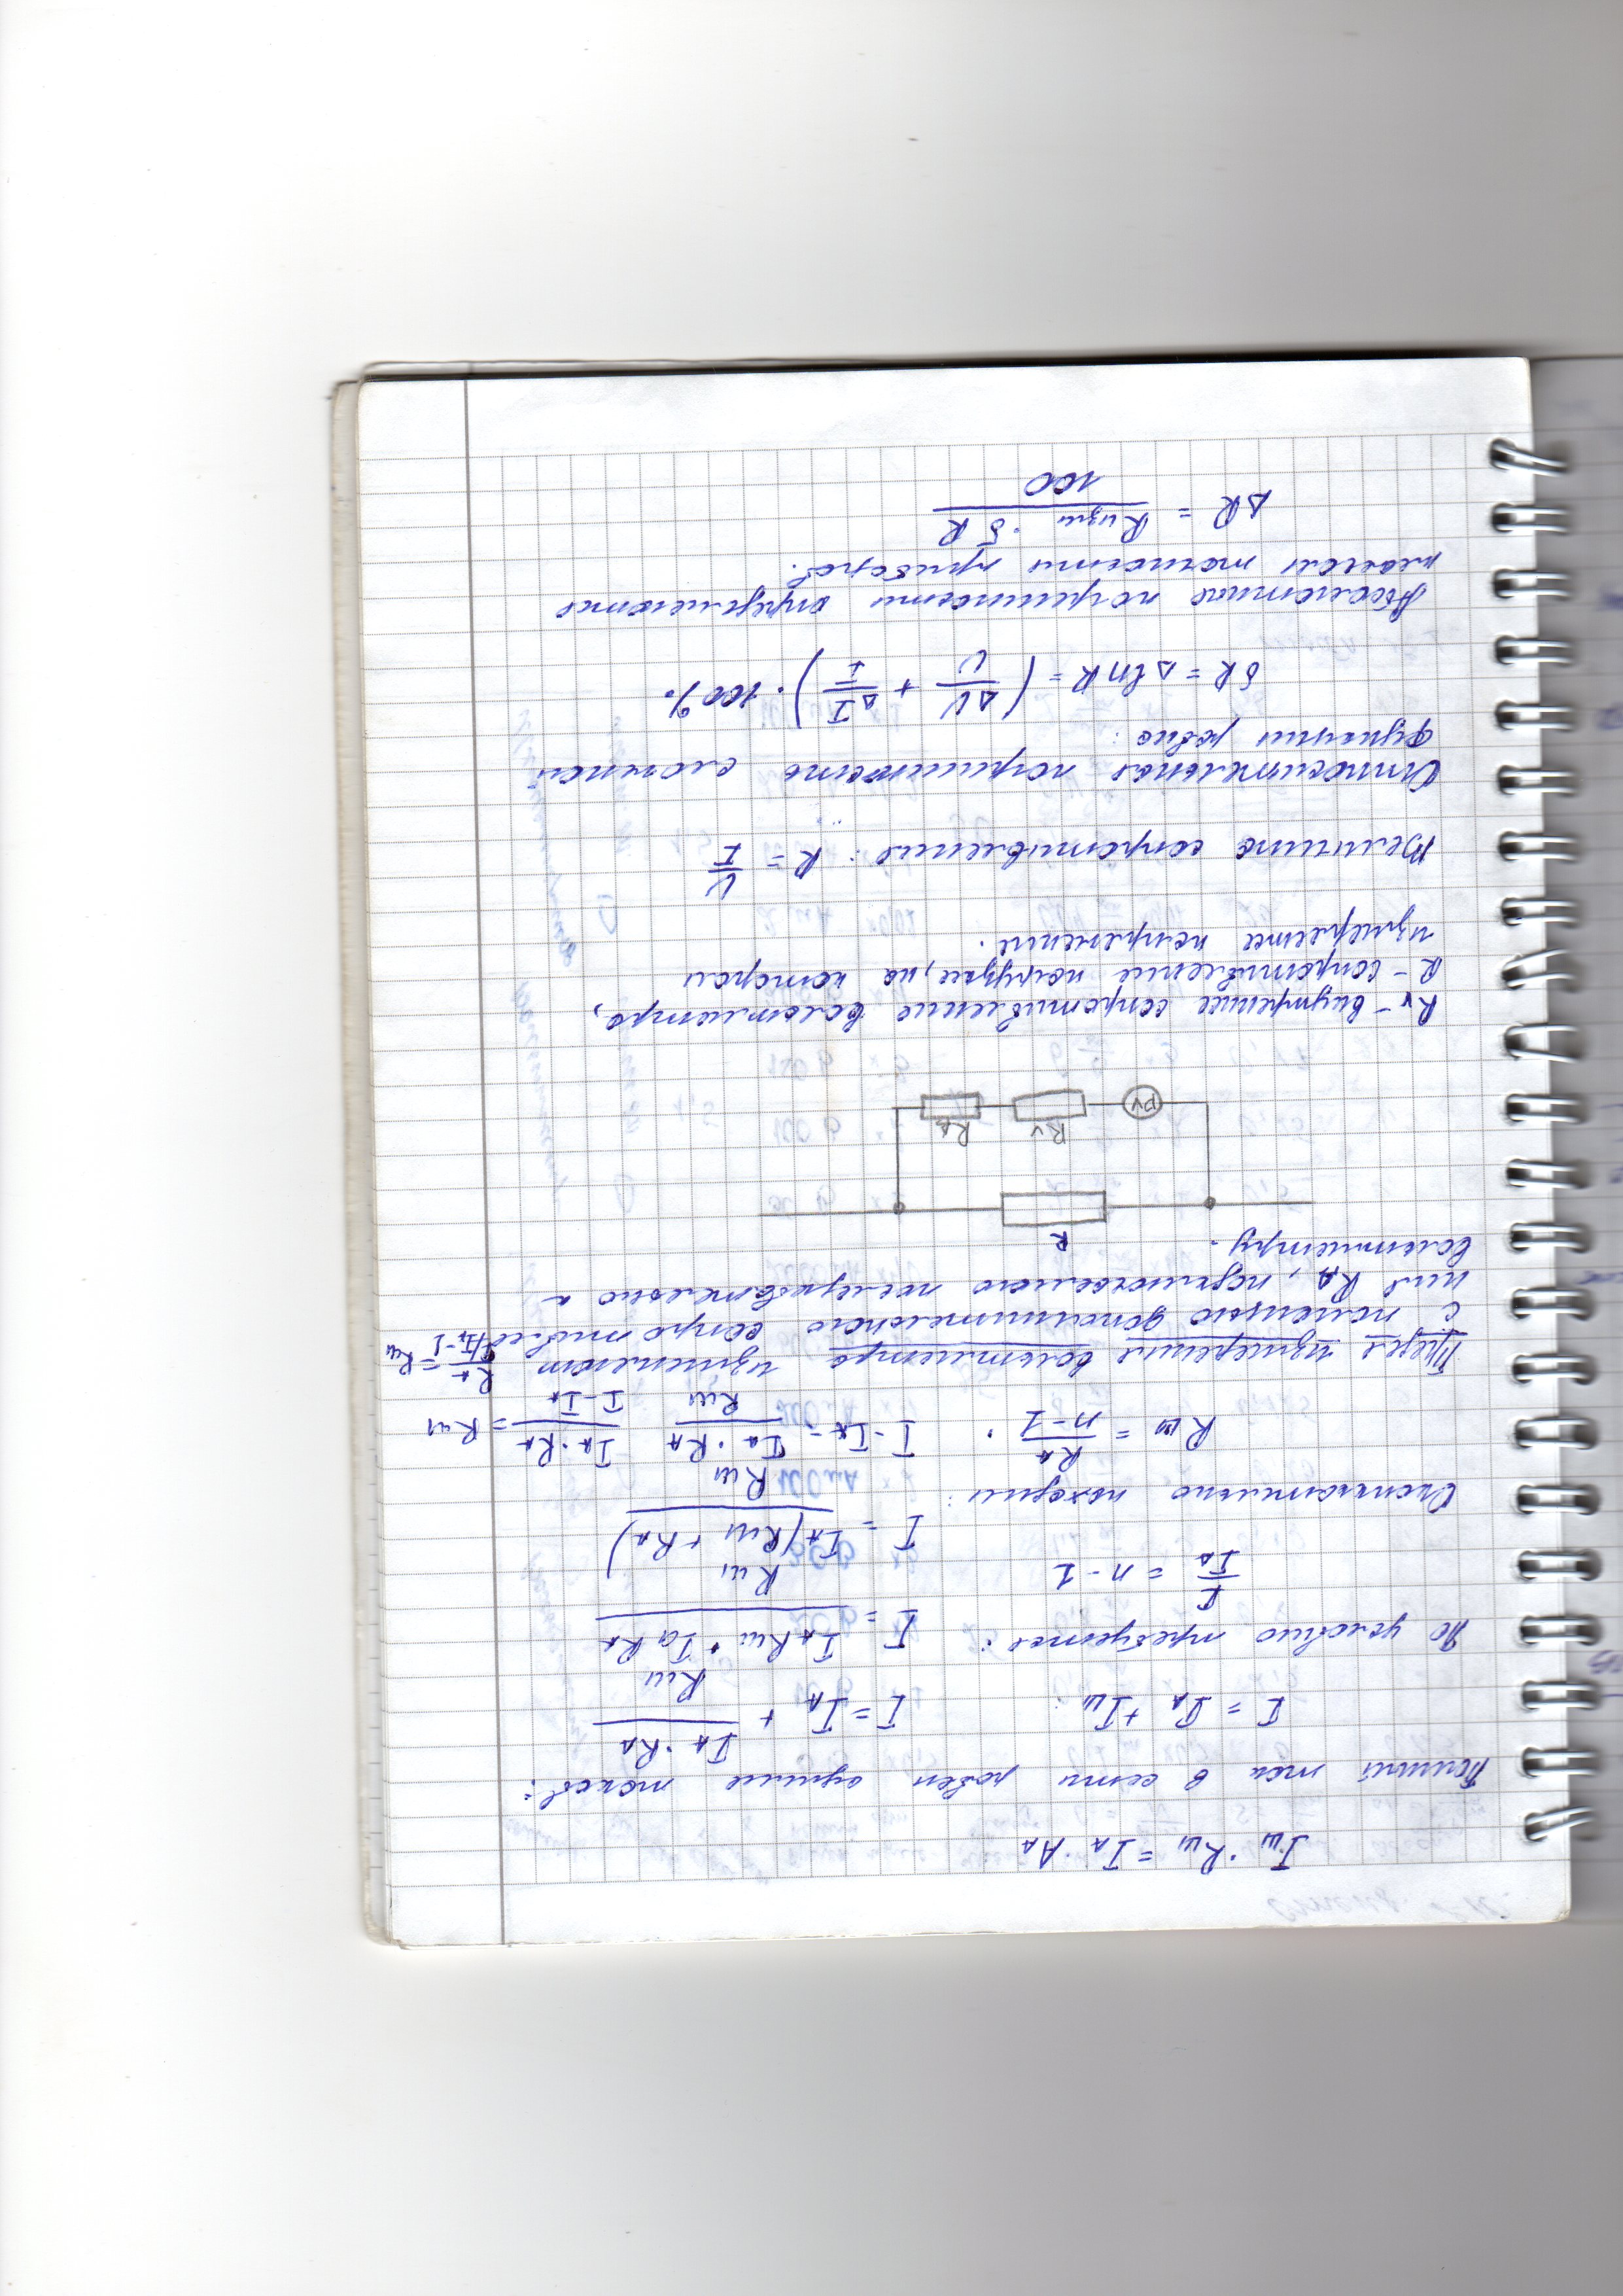 Iш · Rш = IА · AА
Полный ток в сети равен сумме токов:
I = IА + Iш
I = IА + IА · RА / Rш
По условию требуется:
I = IАRш + IаRА / Rш
I / IА = n - 1
I = IА(Rш + RА) / Rш
Окончательно находим:
Rш = RА / n-1 .
I - IА = IА · RА / Rш IА · RА / I - IА = Rш
Предел измерения вольтметра изменяют
RА / I/IА - 1 = Rш
с помощью дополнительного сопротивле
ния RД, подключаемого последовательно к
вольтметру.
R
Rv RД
PV
Rv - внутреннее сопротивление вольтметра,
R - сопротивление нагрузки, на котором
измеряется напряжение.
Величина сопротивления: R = U / I
Относительная погрешность сложной
функции равна:
δR = Δ ln R = (ΔU / U + ΔI / I) · 100%
Абсолютные погрешности определяются
классом точности приборов.
ΔR = Rизм · δR / 100